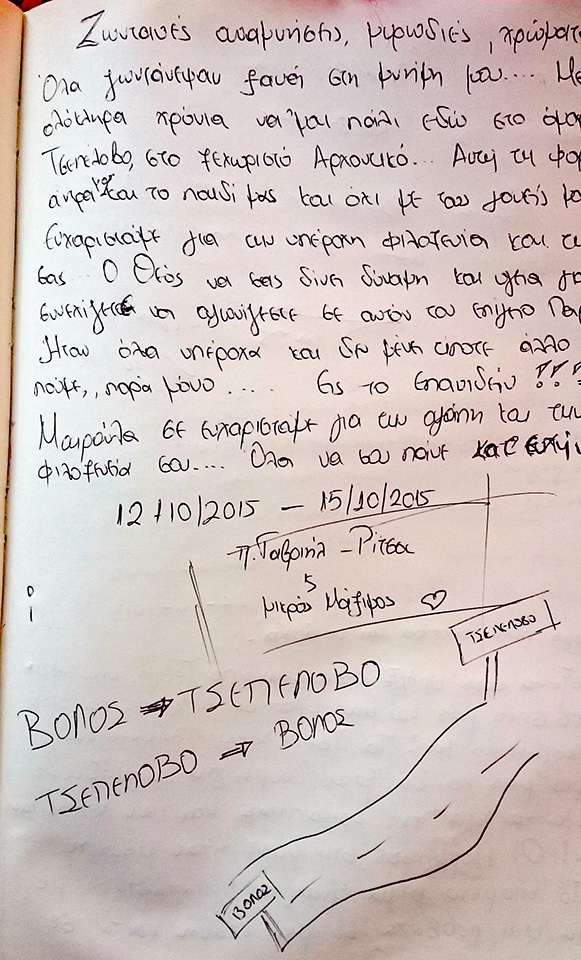 Ζωντανές αναμνήσεις, μυρωδιές, χρώματα
Όλα ζωντάνεψαν ξανά στη μνήμη μου.... Με
ολόκληρα χρόνια να 'μαι πάλι εδώ στο όμο
Τσεπέλοβο, στο ξεχωριστό Αρχοντικό... Αυτή τη φορ
άντρα και το παιδί μας και όχι με τους γονείς μο
Ευχαριστούμε για την υπέροχη φιλοξενία και τ
σας... Ο Θεός να σας δίνει δύναμη και υγεία γ
συνεχίσετε να αγωνίζεστε σε αυτόν τον επίγειο Παρ
Ήταν όλα υπέροχα και δεν μένει τίποτε άλλο
πούμε,, παρά μόνο .... Εις το Επανιδείν !!!
Μαρούλα σε ευχαριστούμε για την αγάπη και την
φιλοξενία σου.... Όλα να σου πάνε κατ'
12/10/2015 – 15/10/2015
π. Γαβριήλ – Ρίτσα
μικρός Μάξιμος ♡
ΤΣΕΠΕΛΟΒΟ
ΒΟΛΟΣ ⇒ ΤΣΕΠΕΛΟΒΟ
ΤΣΕΠΕΛΟΒΟ ⇒ ΒΟΛΟΣ
ΒΟΛΟΣ